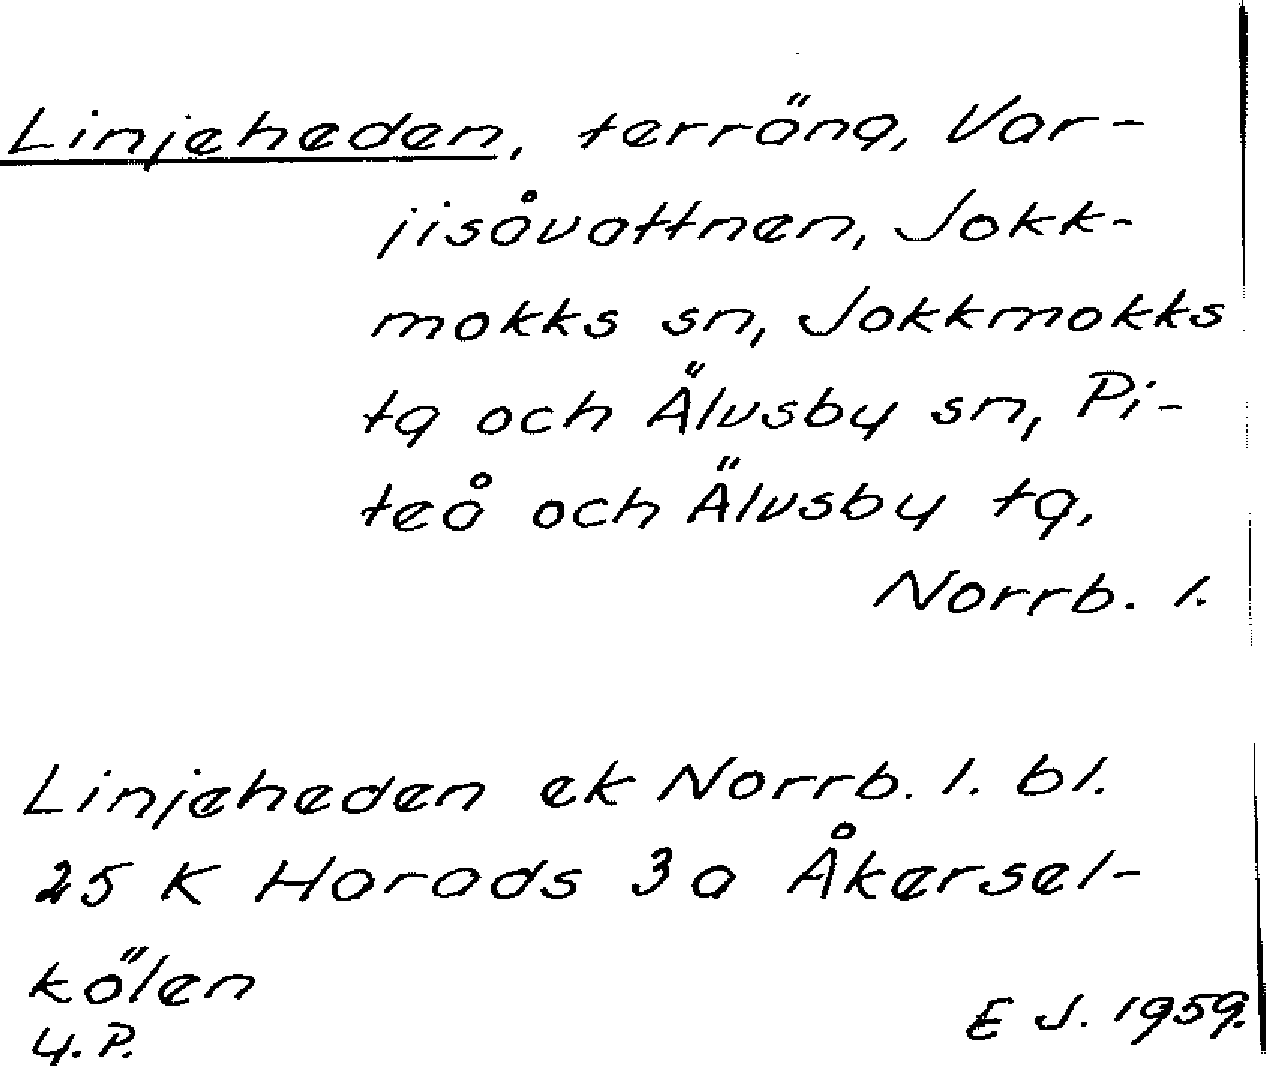 Linjeheden, terräng, Var-
jisåvattnen, Jokk-
mokks sn, Jokkmokks
tg och Älvsby sn, Pi-
teå och Älvsby tg,
Norrb. l.
Linjeheden ek Norrb. l. bl.
25 K Harads 3a Åkersel-
kölen
U. P.
E J. 1959.